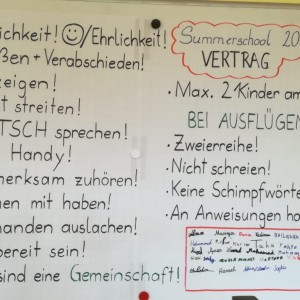 ichkeit! /Ehrlichkeit!
ßen + Verabschieden!
zeigen!
t streiten!
TSCH sprechen!
Handy!
merksam zuhören!
en mit haben!
manden auslachen!
bereit sein!
sind eine Gemeinschaft!
Summerschool 20
VERTRAG
· Max. 2 Kinder am
BEI AUSFLÜGEN
· Zweierreihe!
· Nicht schreien!
· Keine Schimpfwörte
· An Anweisungen ha